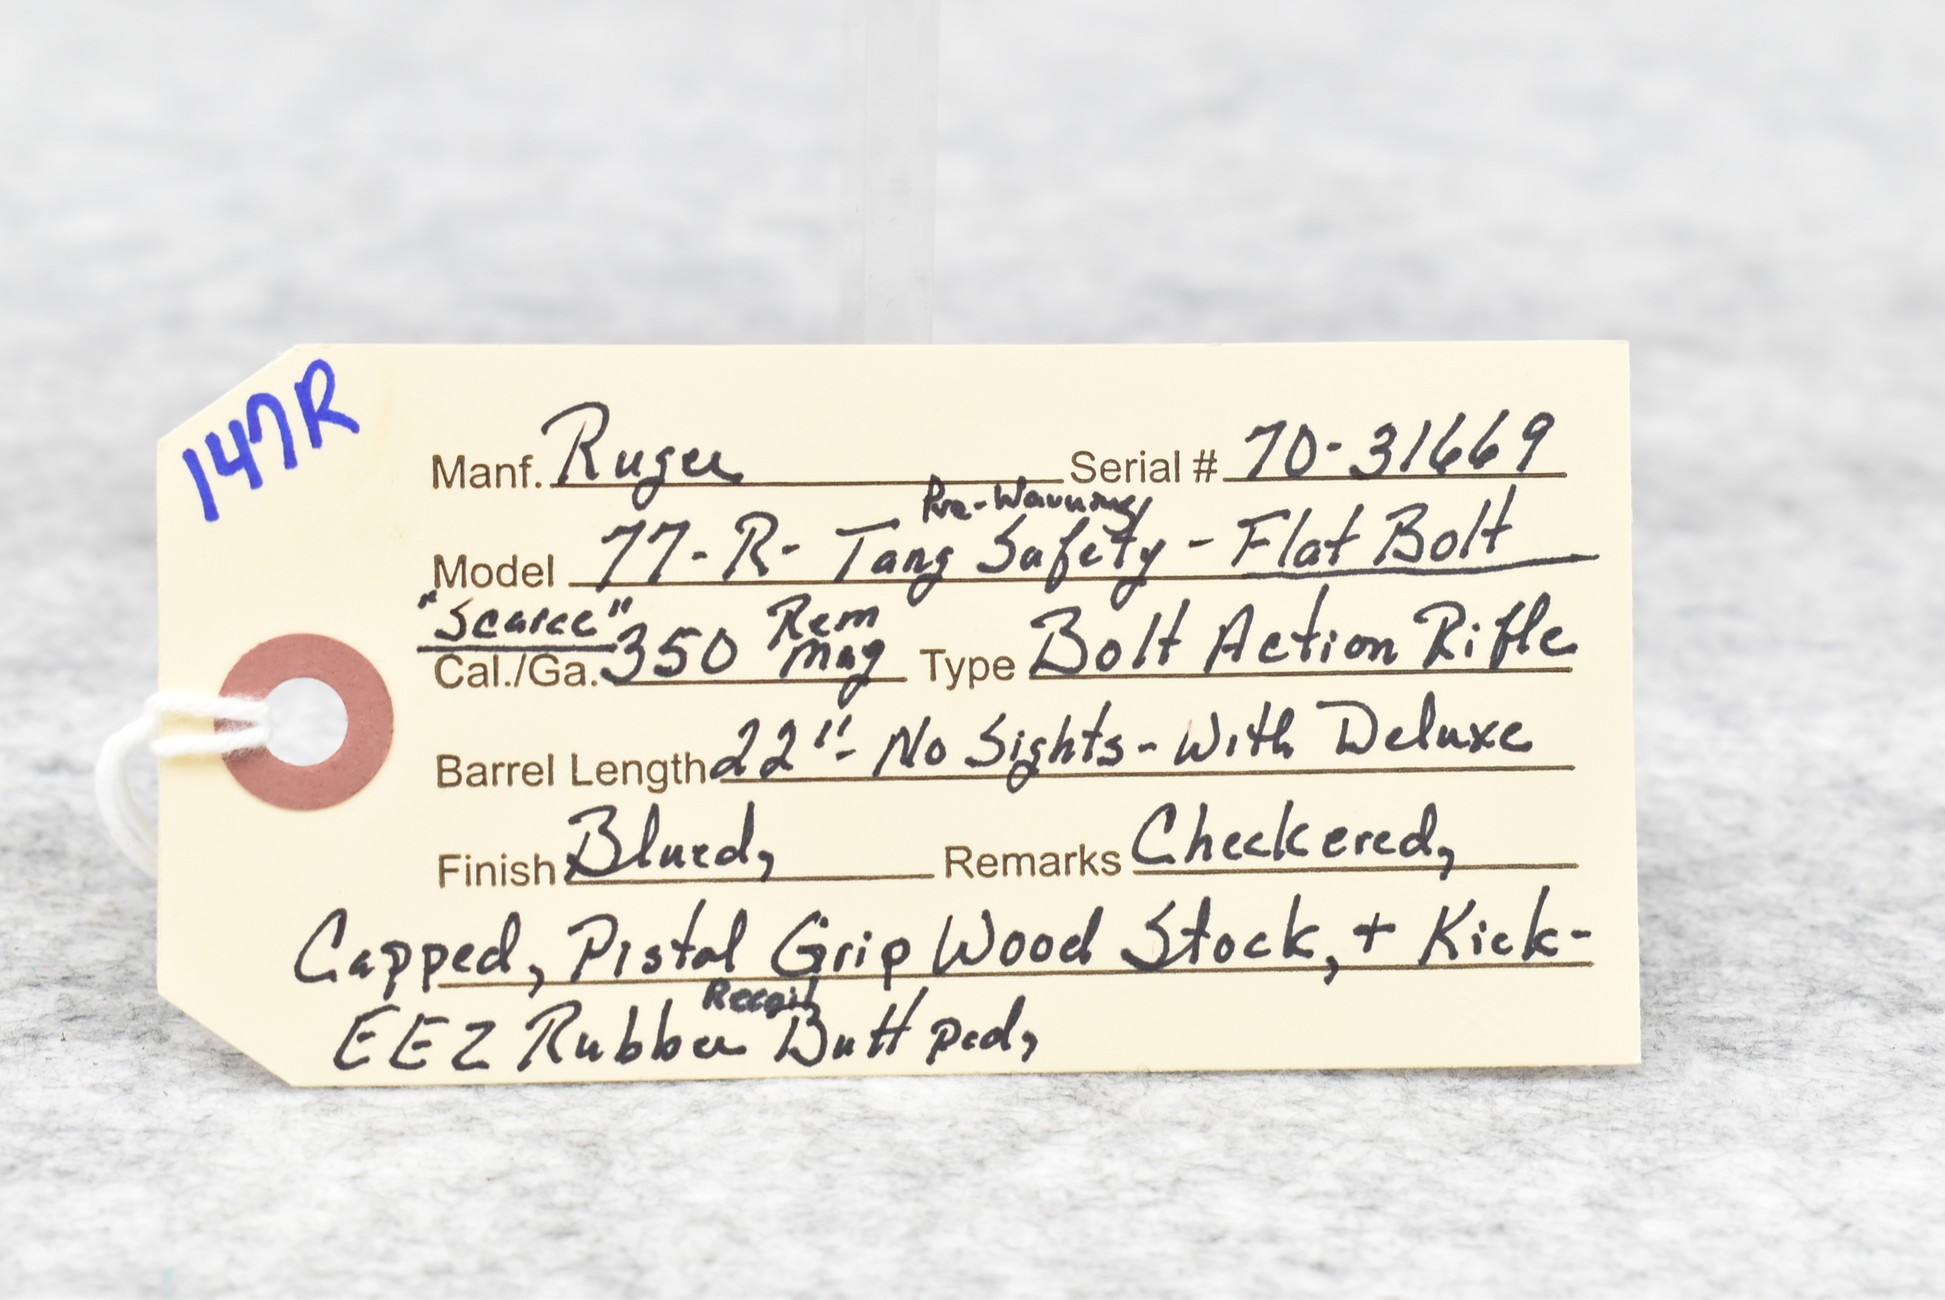 147R
Manf. Ruger Serial # 70-31669
Pre-Warning
Model 77-R- Tang Safety - Flat Bolt
"Scarce"
Cal./Ga. 350 Rem Mag Type Bolt Action Rifle
Barrel Length 22"- No Sights - With Deluxe
Finish Blued, Remarks Checkered,
Capped, Pistol Grip Wood Stock, + Kick-
Recoil
EEZ Rubber Butt pad,